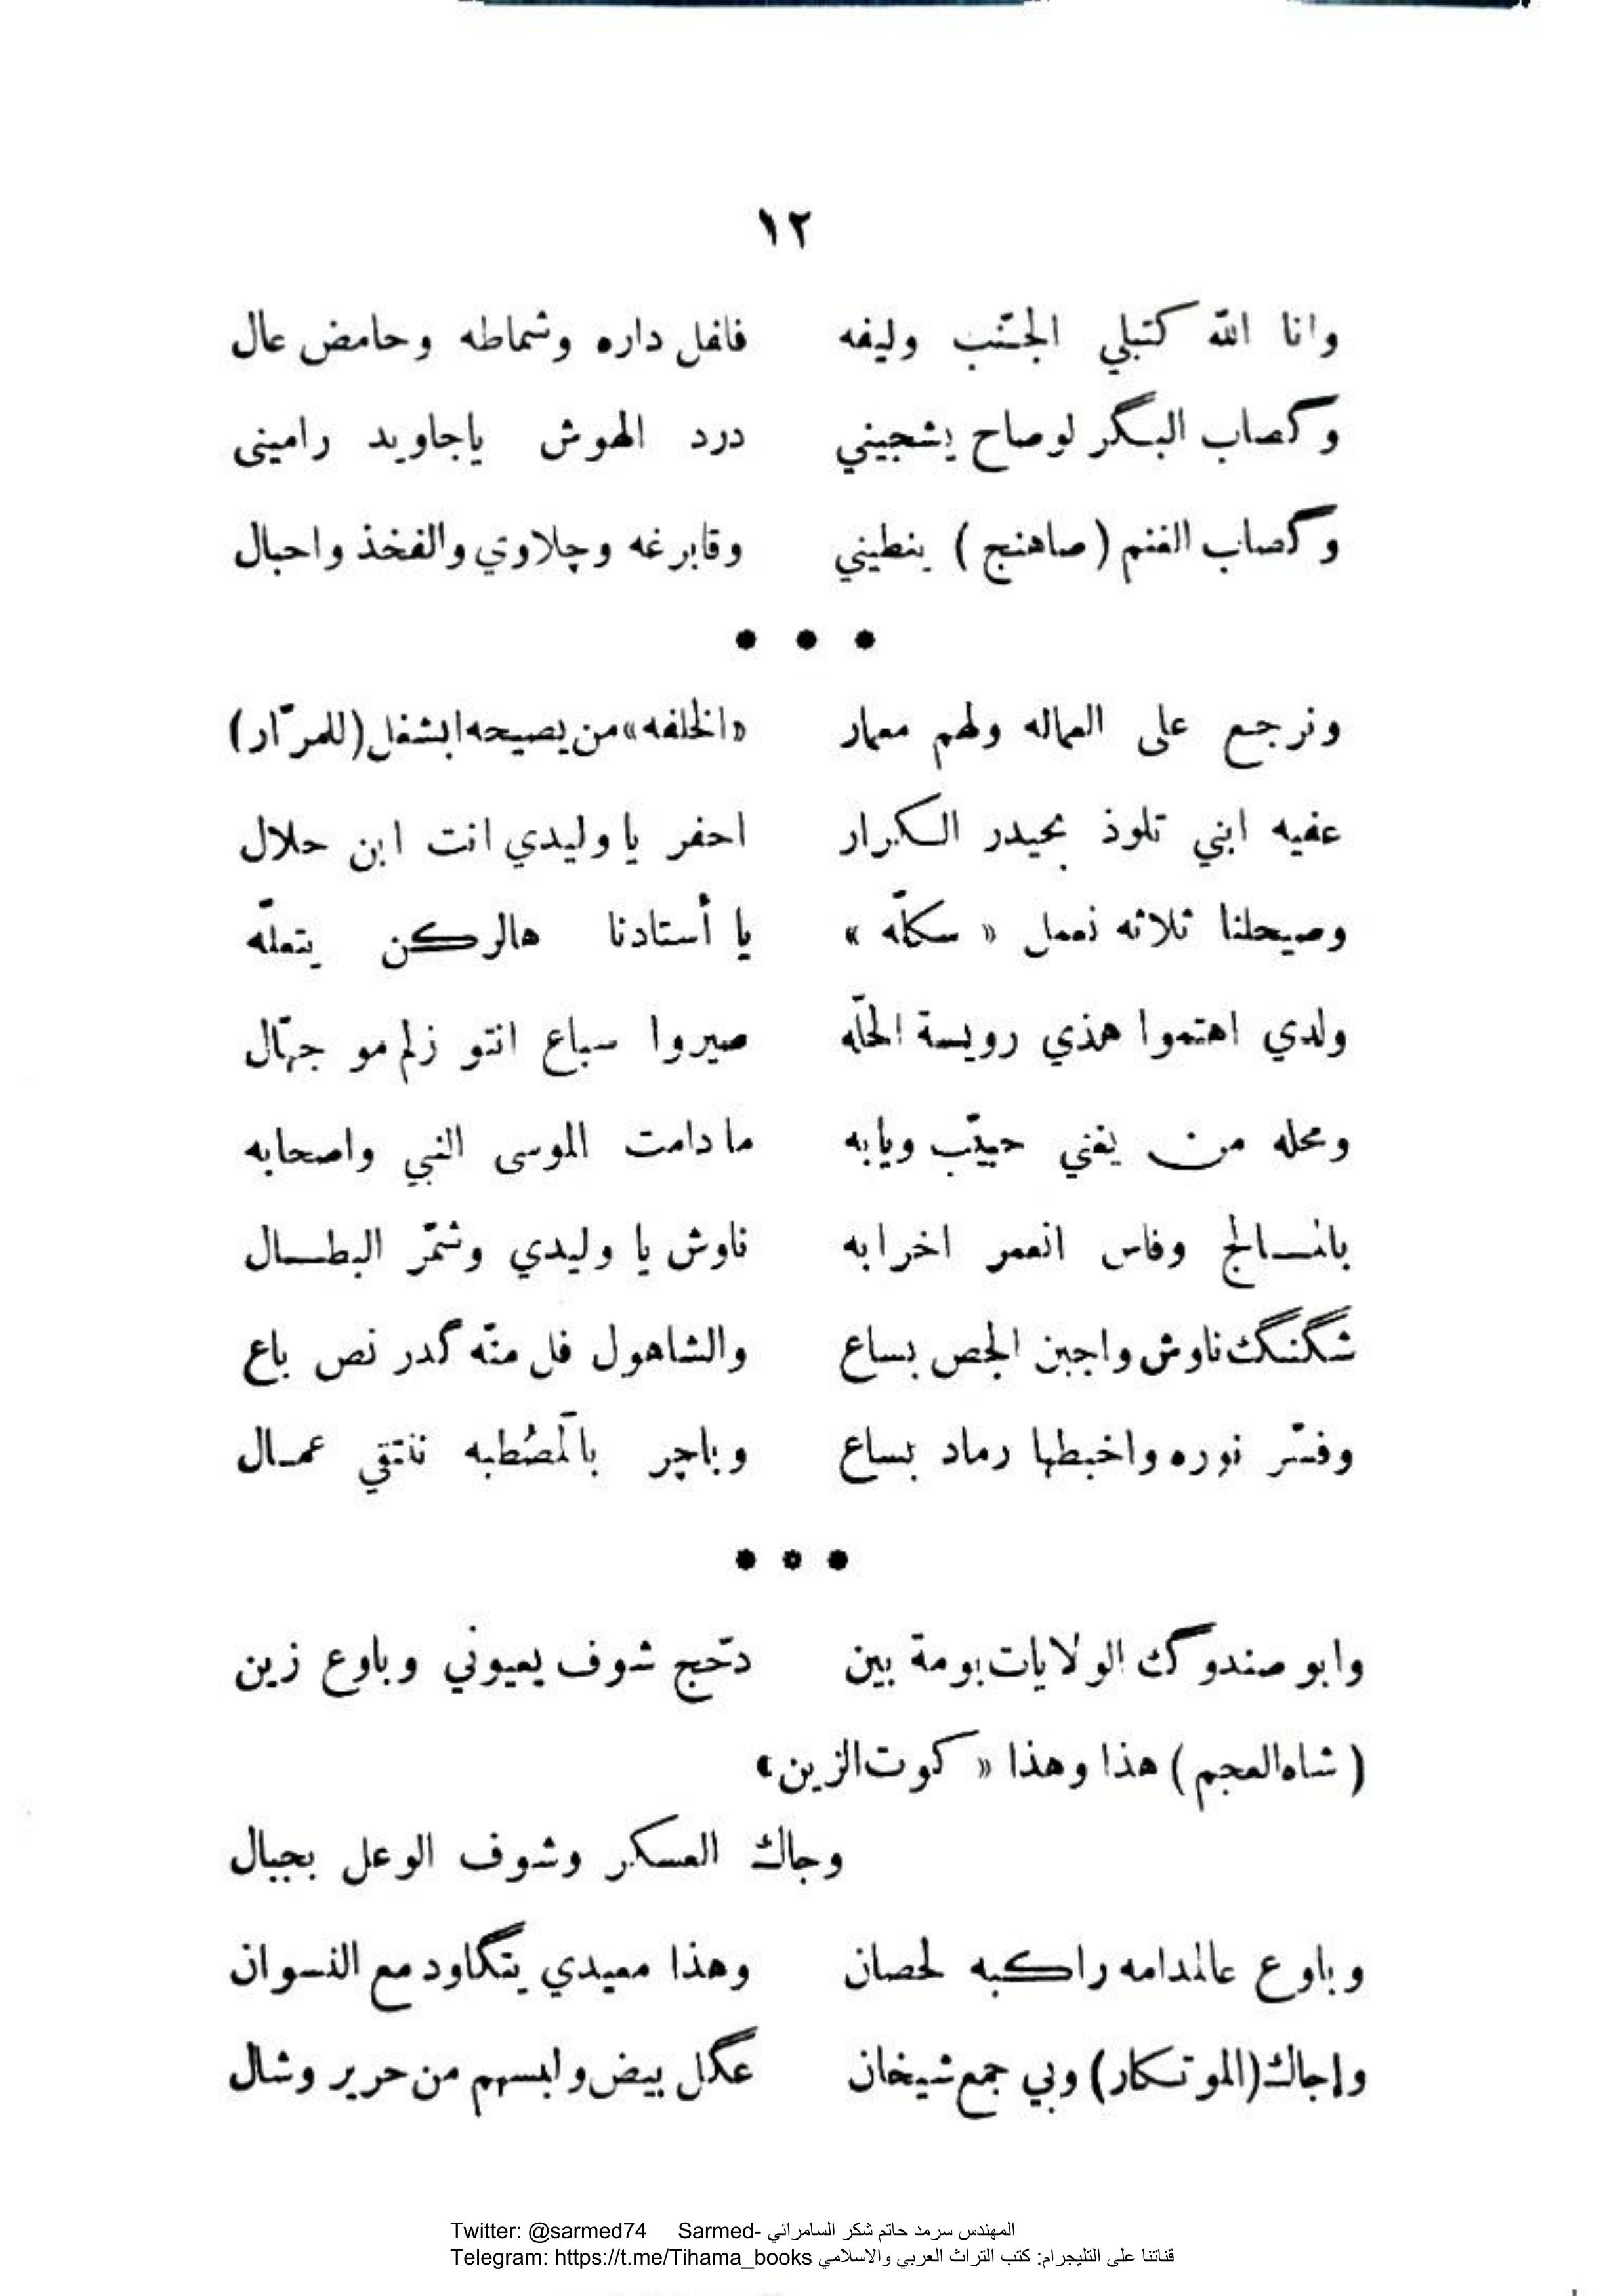 ١٢
وانا الله كتبلي الجتنب وليفه فافل داره وشماطه وحامض عال
وگصاب البگر لوصاح يشجيني درد الهوش ياجاويد راميني
وگصاب الغنم (صاهنج) ينطيني وقابرغه وچلاوي والفخذ واحبال
• • •
ونرجع على العماله ولهم معمار «الخلفه» من يصيحه ابشغل (للمرّار)
عفيه ابني تلوذ بحيدر الكرار احفر يا وليدي انت ابن حلال
وصيحلنا ثلاثه نعمل « سكلّه » يا أستادنا هالركن يتعلّه
ولدي اهتموا هذي رويسة الحلّه صيروا سباع انتو زلم مو جهّال
ومحله من يغني حبيّب ويابه مادامت الموسى النبي واصحابه
بانسالج وفاس انعمر اخرابه ناوش يا وليدي وشمّر البطال
شگنگك ناوش واجبن الجص بساع والشاهول فل منّه گدر نص باع
وفسّر نوره واخبطها رماد بساع وباچر بالمصُطبه ننتقي عمال
• • •
وابو صندوگ الولايات بومة بين دحّج شوف بعيوني وباوع زين
(شاه العجم) هذا وهذا « كوت الزين»
وجاك العسكر وشوف الوعل بجبال
وباوع عالمدامه راكبه لحصان وهذا معيدي يتگاود مع النسوان
وإجاك (الموتكار) وبي جمع شيخان عگل بيض ولبسهم من حرير وشال
Twitter: @sarmed74 Sarmed- المهندس سرمد حاتم شكر السامرائي
Telegram: https://t.me/Tihama_books قناتنا على التليجرام: كتب التراث العربي والاسلامي